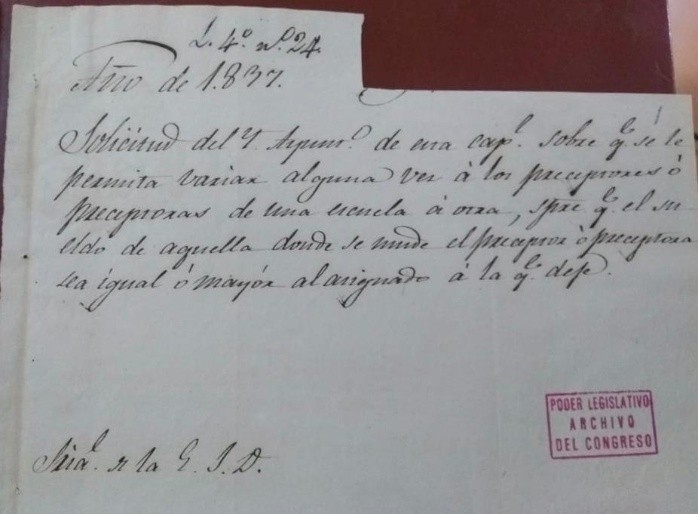 L. 4º nº 24.
Año de 1.837.
Solicitud del Y. Ayunº de esa capl. sobre qe. se le
permita variar alguna vez à los preceptores ò
preceptoras de una escuela à otra, spre qe. el su
eldo de aquella donde se mude el preceptor ò preceptora
sea igual ó mayór al asignado á la qe. deje.
Sria. de la E. J. D.
PODER LEGISLATIVO
ARCHIVO
DEL CONGRESO